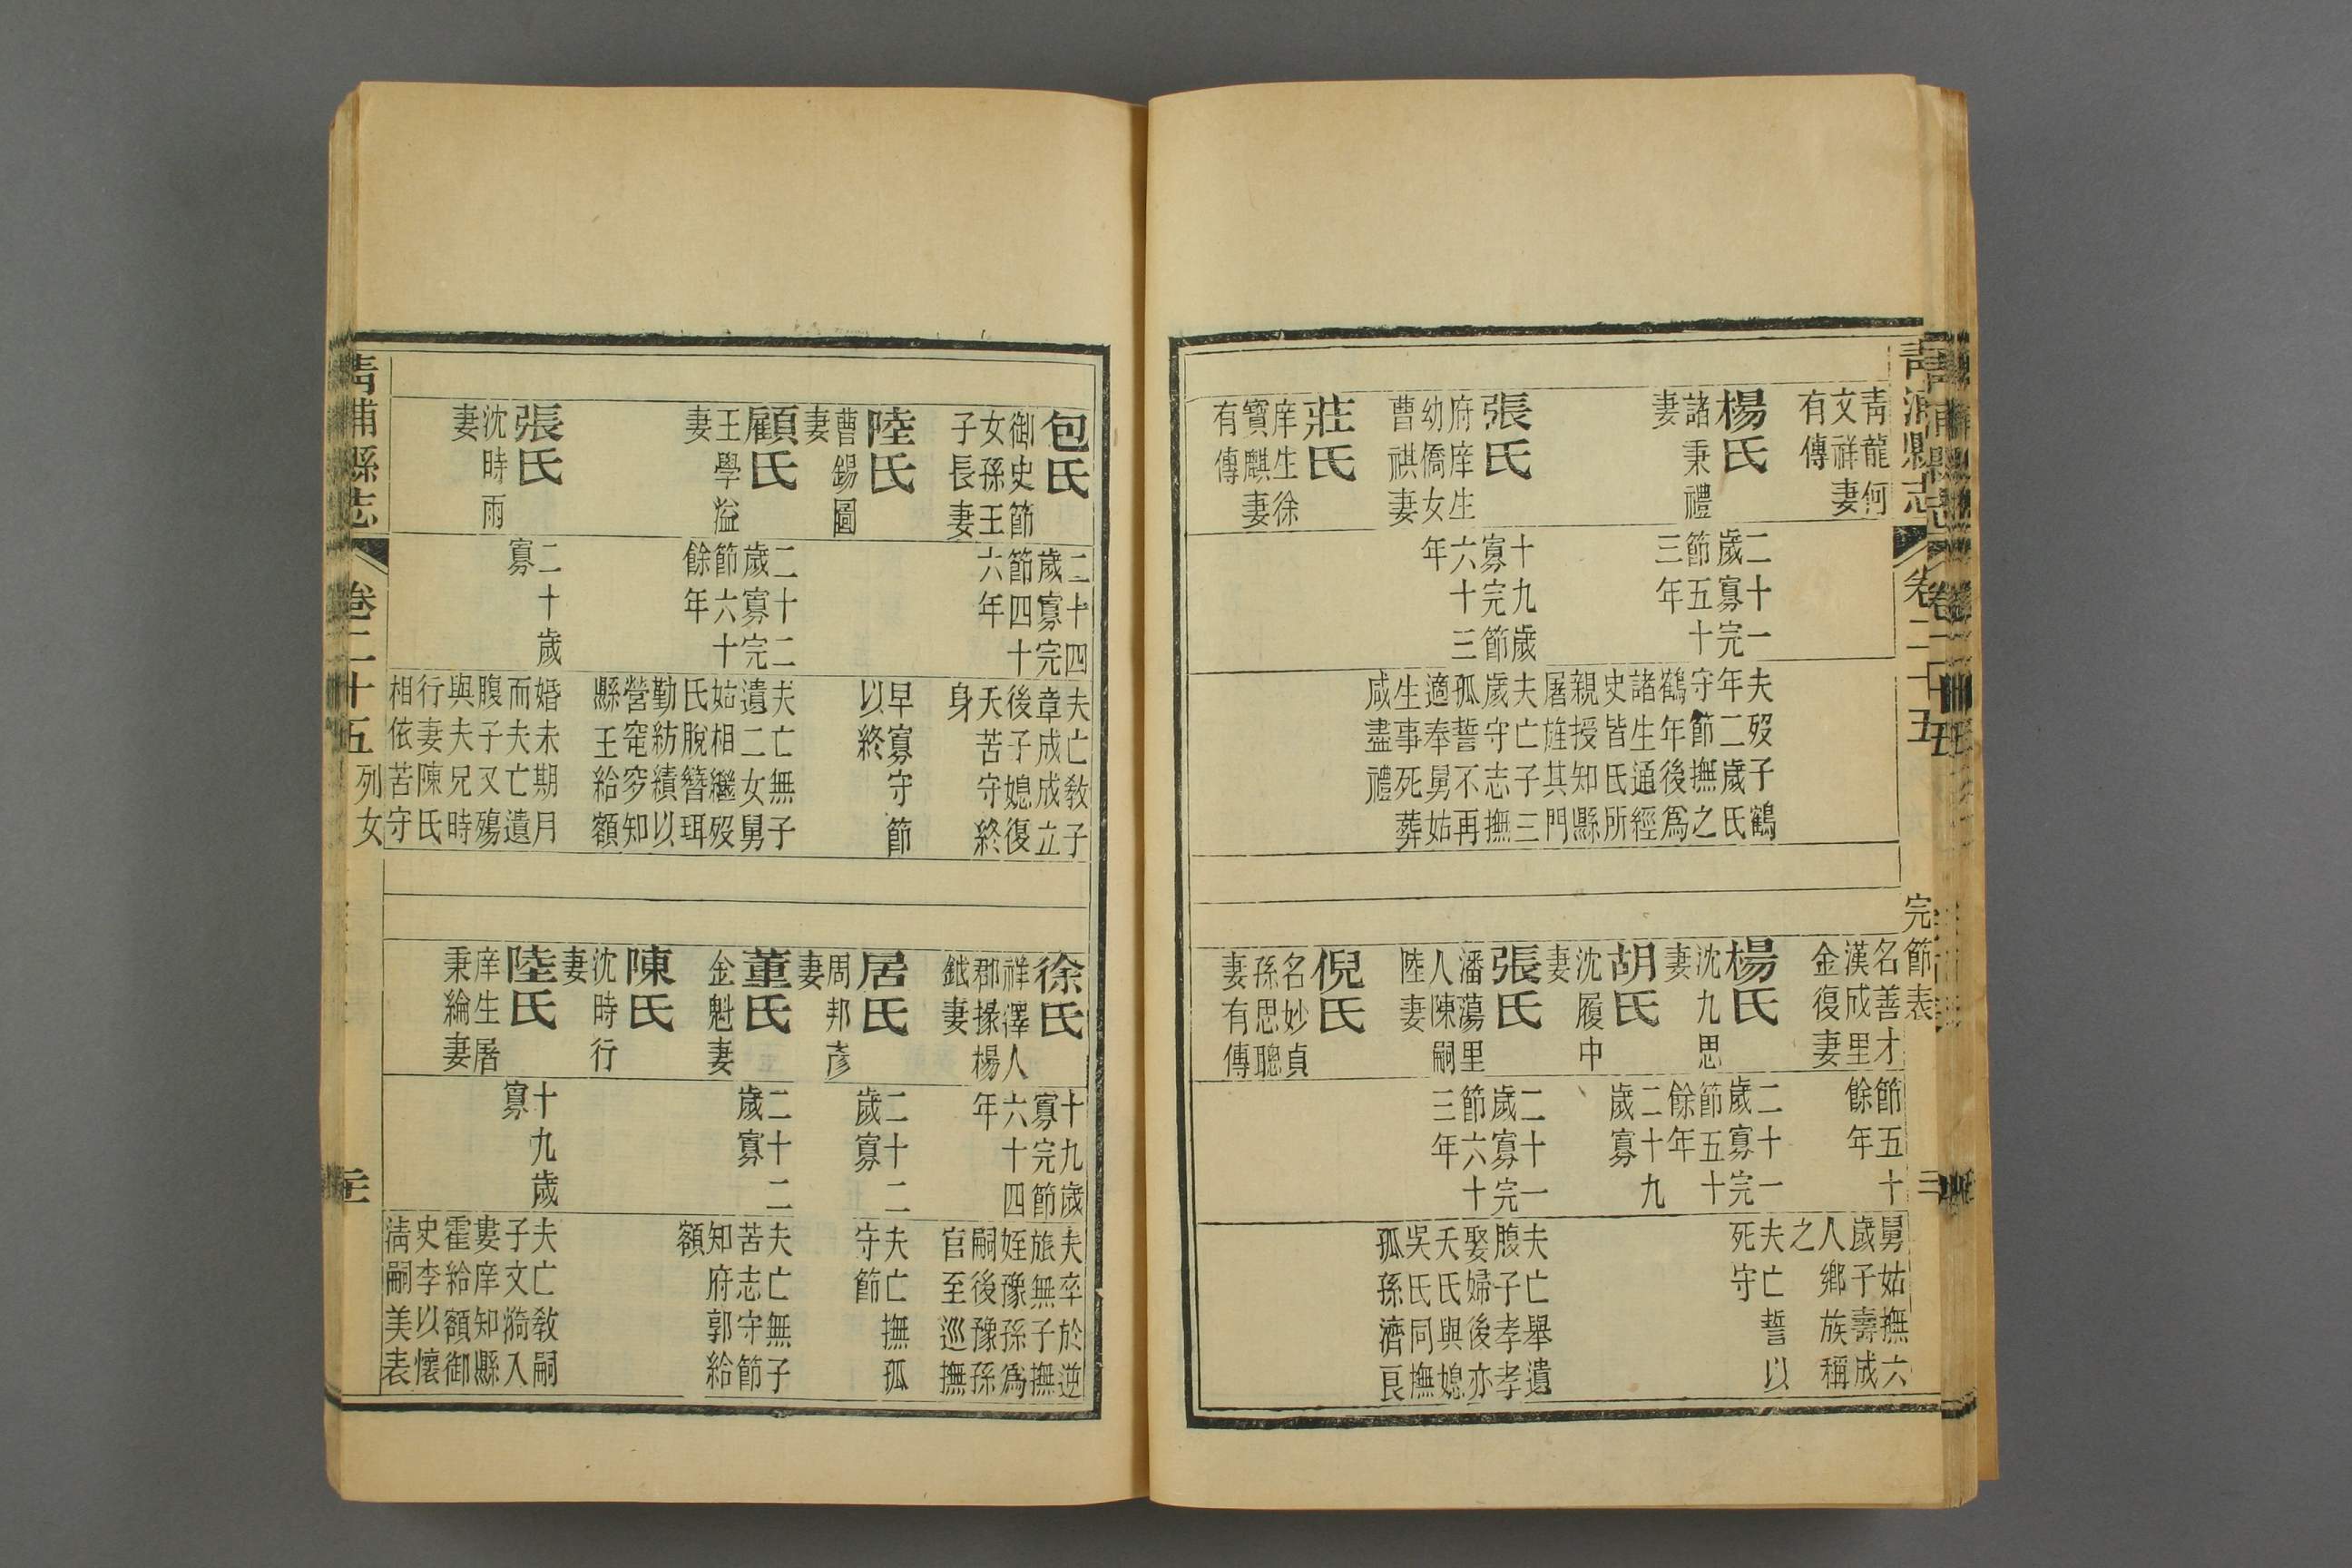 青浦縣志
卷二十五
完節表
青龍何
文祥妻
有傳
楊氏
諸秉禮
妻
二十一
歲寡完
節五十
三年
夫歿子鶴
年二歲氏
守節撫之
鶴年後爲
諸生通經
史皆氏所
親授知縣
屠旌其門
張氏
府庠生
幼僑女
曹祺妻
十九歲
寡完節
六十三
年
夫亡子三
歲守志撫
孤誓不再
適奉舅姑
生事死葬
咸盡禮
莊氏
庠生徐
寶麒妻
有傳
名善才
漢成里
金復妻
節五十
餘年
舅姑撫六
歲子壽成
人鄉族稱
之
楊氏
沈九思
妻
二十一
歲寡完
節五十
餘年
夫亡誓以
死守
胡氏
沈履中
妻
二十九
歲寡
張氏
潘蕩里
人陳嗣
陸妻
二十一
歲寡完
節六十
三年
夫亡舉遺
腹子孝孝
娶婦後亦
夭氏與媳
吳氏同撫
孤孫濟良
倪氏
名妙貞
孫思聰
妻有傳
包氏
御史節
女孫王
子長妻
二十四
歲寡完
節四十
六年
夫亡教子
章成成立
後子媳復
夭苦守終
身
陸氏
曹錫圖
妻
早寡守節
以終
顧氏
王學溢
妻
二十二
歲寡完
節六十
餘年
夫亡無子
遺二女舅
姑相繼歿
氏脫簪珥
勤紡績以
營窀穸知
縣王給額
張氏
沈時雨
妻
二十歲
寡
婚未期月
而夫亡遺
腹子又殤
與夫兄時
行妻陳氏
相依苦守
徐氏
祥澤人
郡掾楊
鉞妻
十九歲
寡完節
六十四
年
夫卒於逆
旅無子撫
姪豫孫爲
嗣後豫孫
官至巡撫
居氏
周邦彥
妻
二十二
歲寡
夫亡撫孤
守節
董氏
金魁妻
二十二
歲寡
夫亡無子
苦志守節
知府郭給
額
陳氏
沈時行
妻
陸氏
庠生屠
秉綸妻
十九歲
寡
夫亡教嗣
子文漪入
婁庠知縣
霍給額御
史李以懷
清嗣美表
青浦縣志
卷二十五
列女